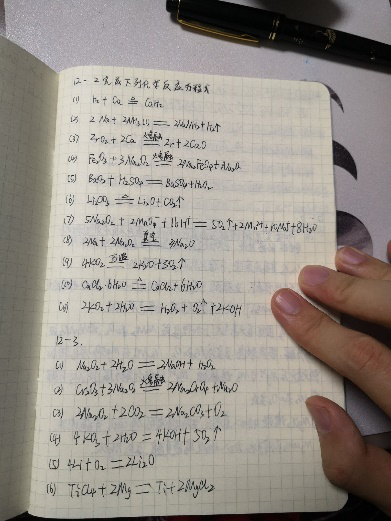 12-2 完成下列化学反应方程式
(1) H₂ + Ca ≜ CaH₂
(2) 2Na + 2NH₃(l) = 2NaNH₂ + H₂↑
(3) ZrO₂ + 2Ca = Zr + 2CaO
(4) Fe₂O₃ + 3Na₂O₂ = 2Na₂FeO₄ + Na₂O
(5) BaO₂ + H₂SO₄ = BaSO₄ + H₂O₂
(6) Li₂CO₃ ≜ Li₂O + CO₂↑
(7) 5Na₂O₂ + 2MnO₄⁻ + 16H⁺ = 5O₂↑ + 2Mn²⁺ + 10Na⁺ + 8H₂O
(8) 2Na + Na₂O₂ 真空 2Na₂O
(9) 4KO₂ 2K₂O + 3O₂↑
(10) CaCl₂·6H₂O ≜ CaCl₂ + 6H₂O
(11) 2KO₂ + 2H₂O = H₂O₂ + O₂↑ + 2KOH
12-3.
(1) Na₂O₂ + 2H₂O = 2NaOH + H₂O₂
(2) Cr₂O₃ + 3Na₂O₂ = 2Na₂CrO₄ + Na₂O
(3) 2Na₂O₂ + 2CO₂ = 2Na₂CO₃ + O₂
(4) 4KO₂ + 2H₂O = 4KOH + 3O₂↑
(5) 4Li + O₂ = 2Li₂O
(6) TiCl₄ + 2Mg = Ti + 2MgCl₂